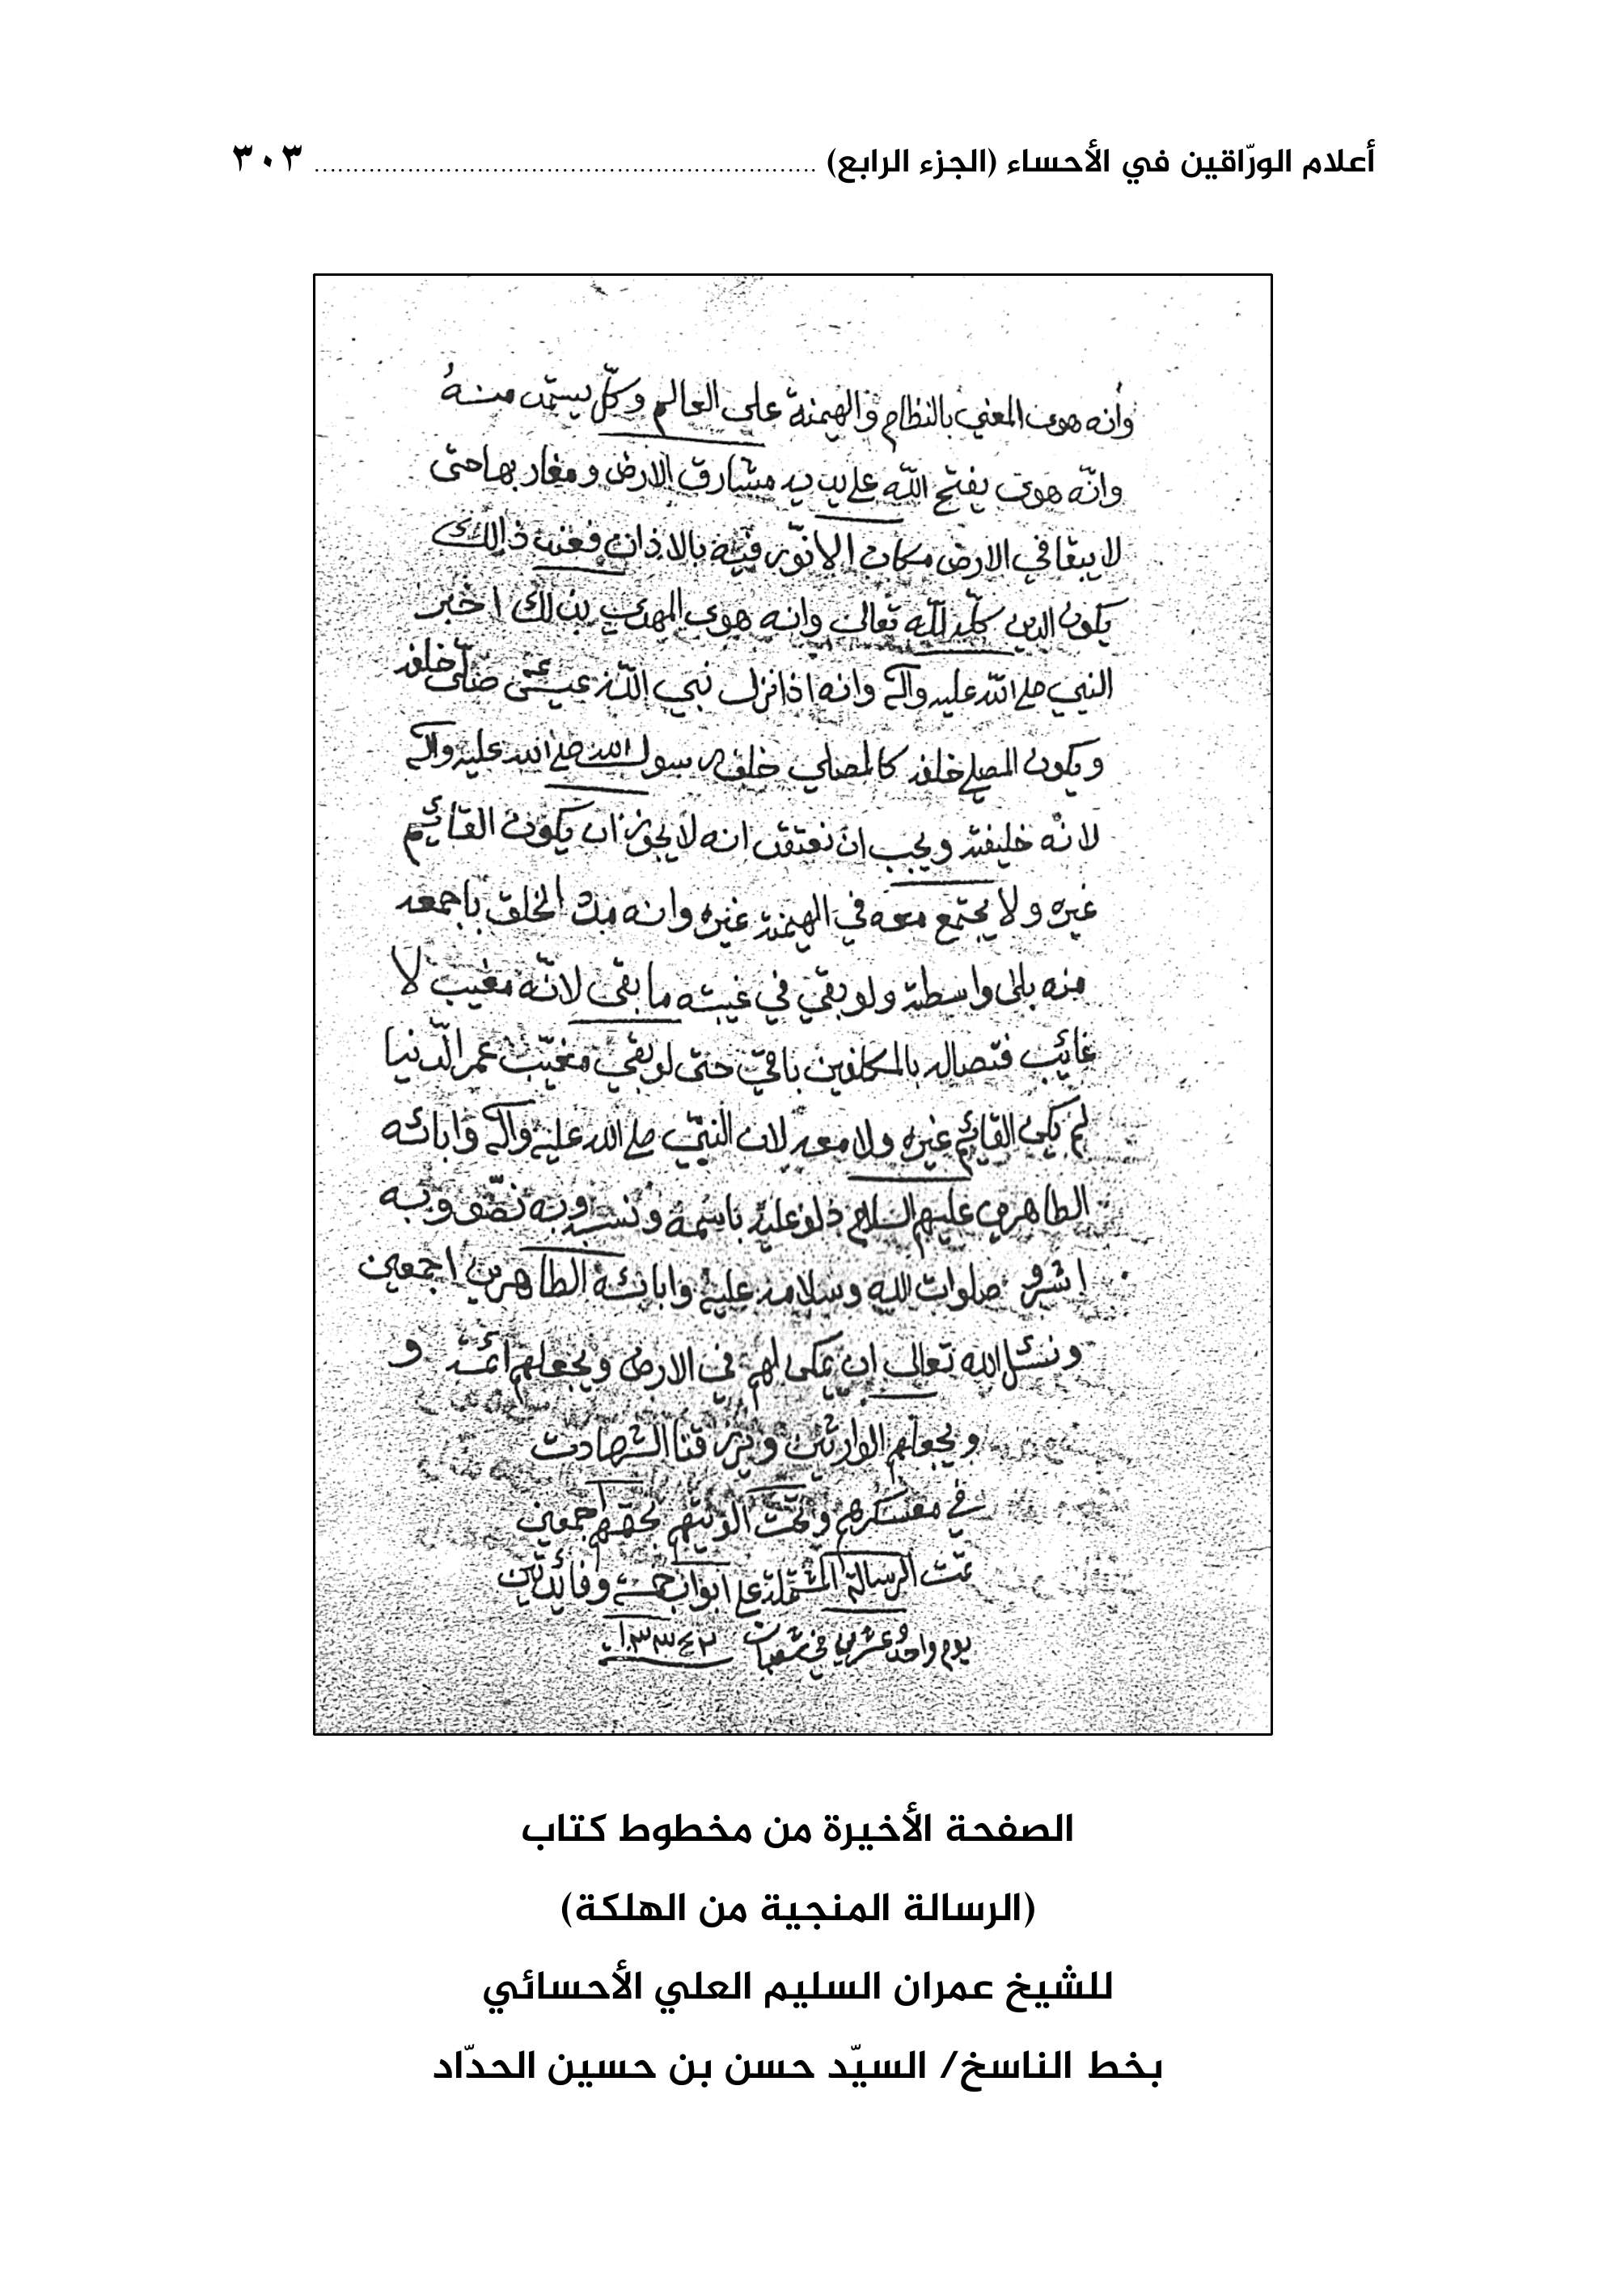 أعلام الورّاقين في الأحساء (الجزء الرابع) ................................................................ ٣٠٣
وانه هو المعني بالنظام والهيمنة على العالم وكلّ يستمد منه
وانّه هو يفتح الله على يديه مشارق الارض ومغاربها حتى
لا يبقا في الارض مكان الا نوّر فيه بالاذان فعند ذالك
يكون الدين كلّه لله تعالى وانه هو المهدي بذلك اخبر
النبي صلى الله عليه وآله وانه اذا نزل نبي الله عيسى صلّى خلفه
ويكون المصلي خلفه كالمصلي خلف رسول الله صلى الله عليه وآله
لانّه خليفته ويجب ان نعتقد انه لا يجوز ان يكون القائم
غيره ولا يجتمع معه في الهيمنة غيره وانه مدد الخلق باجمعه
منه بلى واسطة ولو بقي في غيبته ما بقى لانّه مغيب لا
غائب فتصاله بالمكلفين باقي حتى لو بقي مغيّب عمر الدّنيا
لم يكن القائم غيره ولا معه لان النبيّ صلى الله عليه وآله وابائه
الطاهرين عليهم السلام دلو عليه باسمه ونسبه وبه نصّو وبه
اشرو صلوات الله وسلامه عليه وابائه الطاهرين اجمعين
ونسئل الله تعالى ان يمكن لهم في الارض ويجعلهم ائمة و
ويجعلهم الوارثين ويرزقنا الشهادت
في معسكرهم وتحت الويتهم بحقهم اجمعين
تمت الرسالة المشتملة على ابواب خمسة وفائدتين
يوم واحد وعشرين في شعبان
الصفحة الأخيرة من مخطوط كتاب
(الرسالة المنجية من الهلكة)
للشيخ عمران السليم العلي الأحسائي
بخط الناسخ/ السيّد حسن بن حسين الحدّاد